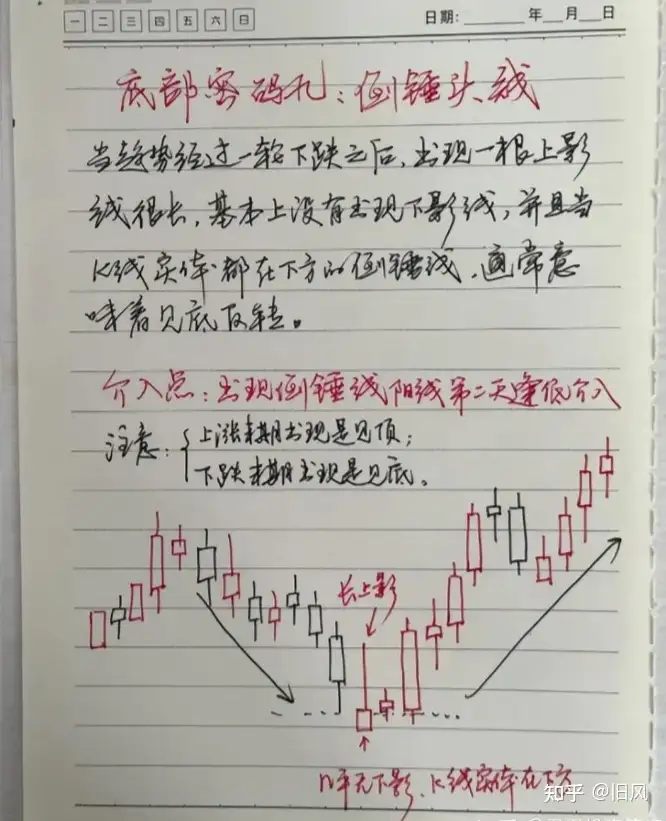 一 二 三 四 五 六 日
日期: 年 月 日
底部密码孔:倒锤头线
当趋势经过一轮下跌之后,出现一根上影
线很长,基本上没有出现下影线,并且当
K线实体都在下方的倒锤线,通常意
味着见底反转。
介入点:出现倒锤线阳线第二天逢低介入
注意:
上涨末期出现是见顶;
下跌末期出现是见底。
长上影
几乎无下影、K线实体在下方
知乎 @旧风